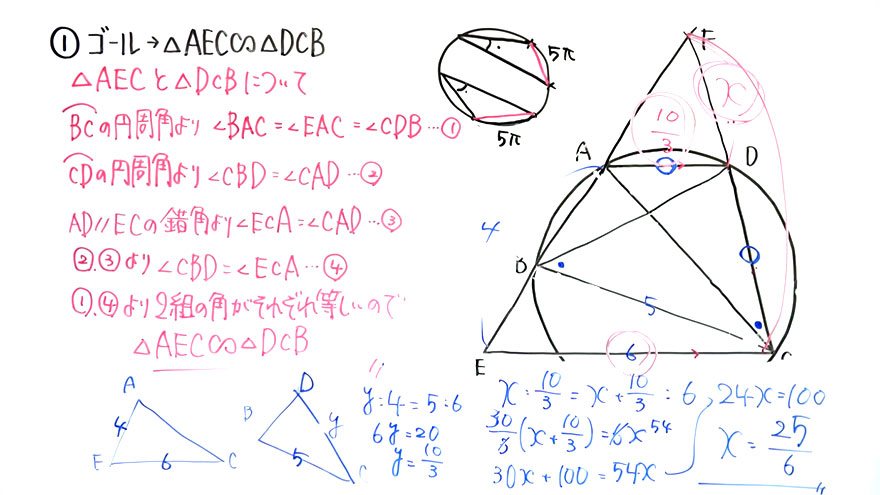 ① ゴール→△AEC∽△DCB
△AECと△DCBについて
BCの円周角より ∠BAC=∠EAC=∠CDB…①
CDの円周角より ∠CBD=∠CAD…②
AD//ECの錯角より∠ECA=∠CAD…③
②.③より ∠CBD=∠ECA…④
①.④より2組の角がそれぞれ等しいので
△AEC∽△DCB
5π
5π
F
x
10/3
A
D
4
B
5
E
6
C
A
4
E
6
C
D
B
y
5
C
y:4=5:6
6y=20
y=10/3
x:10/3=x+10/3:6
30/3(x+10/3)=6x54
30x+100=54x
24x=100
x=25/6